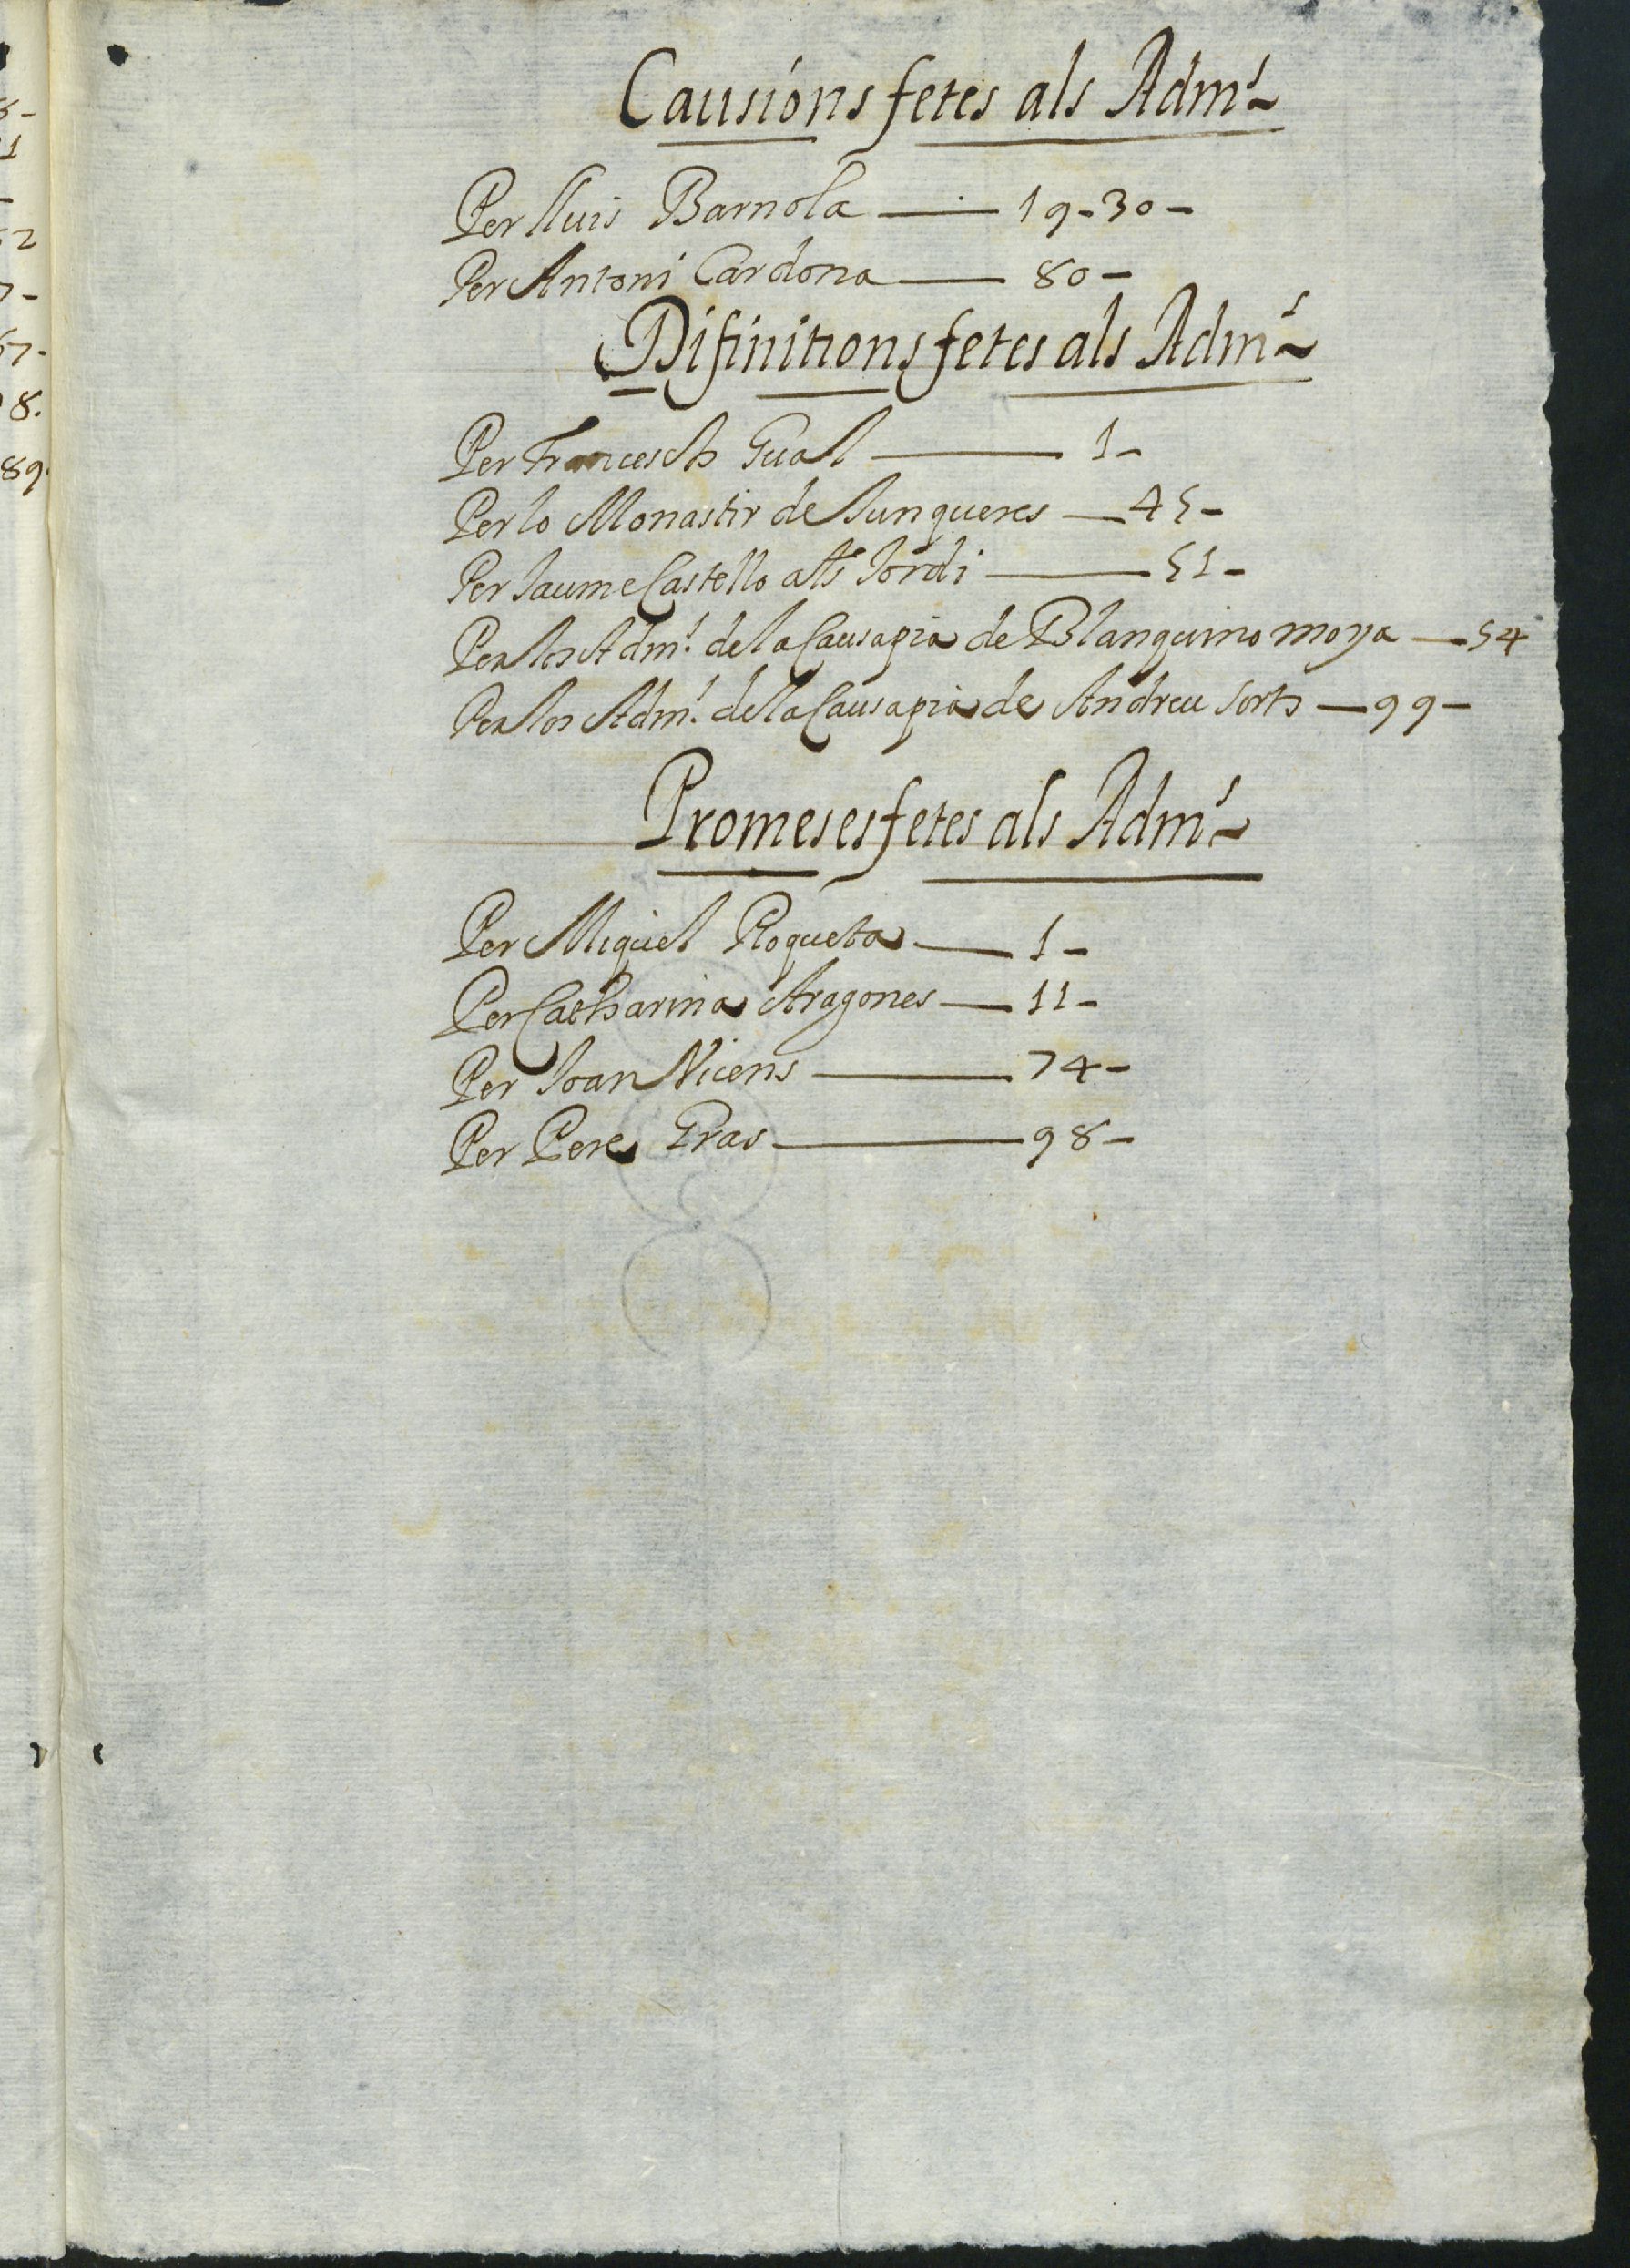 Causions fetes als Adm.s
Per lluis Barnola — 19-30-
Per Antoni Cardona — 80-
Difinitions fetes als Adm.s
Per Francesch Gual — 1-
Per lo Monastir de Junqueres — 45-
Per Jaume Castello als Jordi — 51-
Per los Adm.s de la Causa pia de Blanquino moya — 54
Per los Adm.s de la Causa pia de Andreu Sorts — 99-
Promeses fetes als Adm.s
Per Miquel Roqueta — 1-
Per Catharina Aragones — 11-
Per Joan Vicens — 74-
Per Pere Gras — 98-